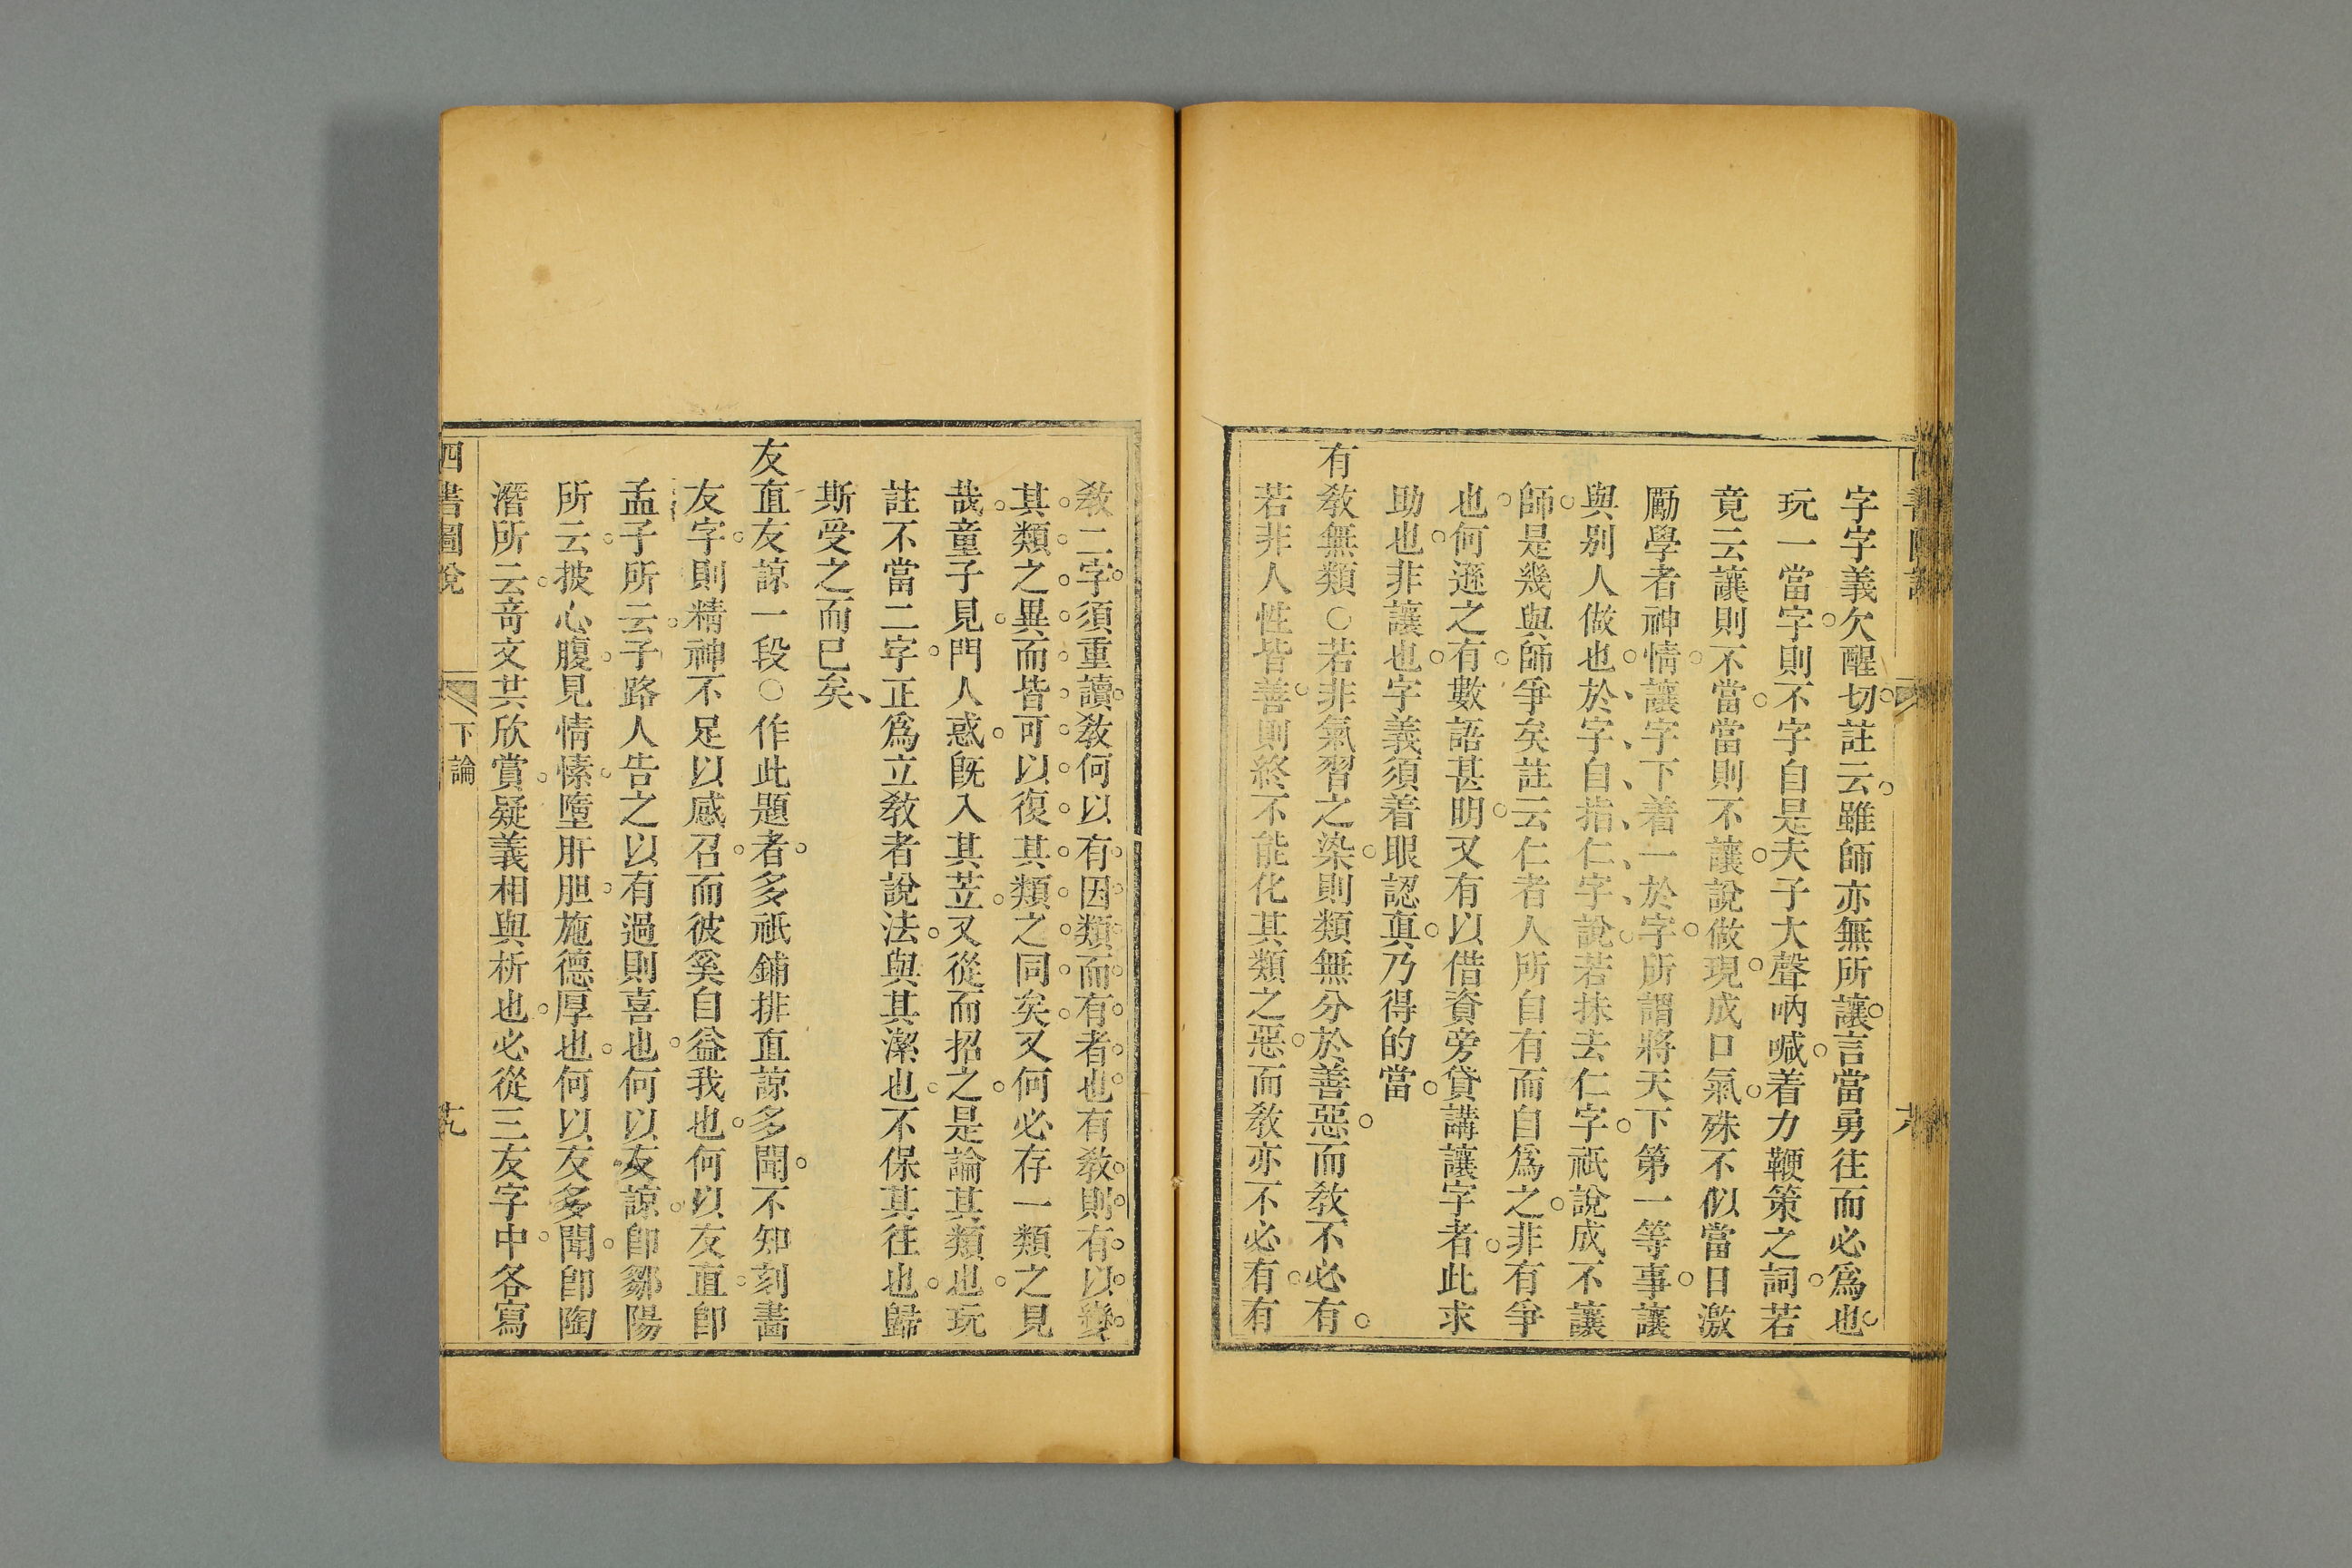 字字義欠醒切註云雖師亦無所讓言當勇往而必爲也
玩一當字則不字自是夫子大聲吶喊着力鞭策之詞若
竟云讓則不當當則不讓說做現成口氣殊不似當日激
勵學者神情讓字下着一於字所謂將天下第一等事讓
與别人做也於字自指仁字說若抹去仁字祇說成不讓
師是幾與師爭矣註云仁者人所自有而自爲之非有爭
也何遜之有數語甚明又有以借資旁貸講讓字者此求
助也非讓也字義須着眼認真乃得的當
有敎無類○若非氣習之染則類無分於善惡而敎不必有
若非人性皆善則終不能化其類之惡而敎亦不必有有
敎二字須重讀敎何以有因類而有者也有敎則有以變
其類之異而皆可以復其類之同矣又何必存一類之見
哉童子見門人惑旣入其苙又從而招之是論其類也玩
註不當二字正爲立敎者說法與其潔也不保其往也歸
斯受之而已矣
友直友諒一段○作此題者多祇鋪排直諒多聞不知刻畵
友字則精神不足以感召而彼奚自益我也何以友直卽
孟子所云子路人告之以有過則喜也何以友諒卽鄒陽
所云披心腹見情愫墮肝胆施德厚也何以友多聞卽陶
潛所云竒文共欣賞疑義相與析也必從三友字中各寫
四書圖說 下論 十九